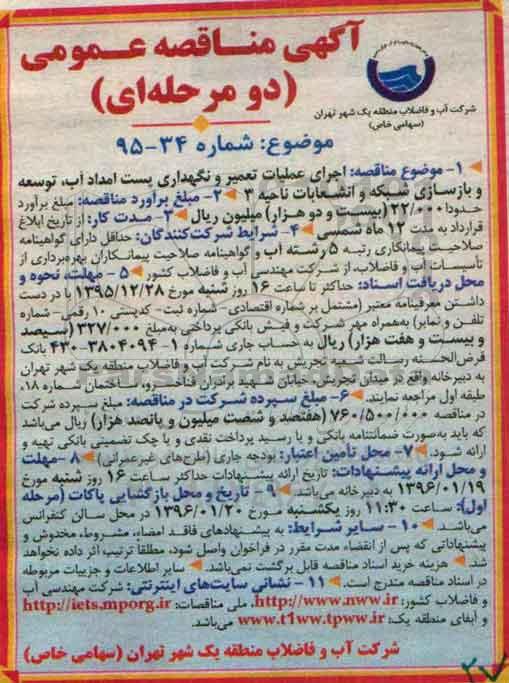 آگهی مناقصه عمومی
(دو مرحله‌ای)
شرکت آب و فاضلاب منطقه یک شهر تهران
(سهامی خاص)
موضوع: شماره ۳۴-۹۵
۱- موضوع مناقصه: اجرای عملیات تعمیر و نگهداری پست امداد آب، توسعه
و بازسازی شبکه و انشعابات ناحیه ۳ ۲- مبلغ برآورد مناقصه: مبلغ برآورد
حدودا ۲۲/۰۰۰ (بیست و دو هزار) میلیون ریال ۳- مدت کار: از تاریخ ابلاغ
قرارداد به مدت ۱۲ ماه شمسی ۴- شرایط شرکت‌کنندگان: حداقل دارای گواهینامه
صلاحیت پیمانکاری رتبه ۵ رشته آب و گواهینامه صلاحیت پیمانکاران بهره‌برداری از
تأسیسات آب و فاضلاب، از شرکت مهندسی آب و فاضلاب کشور ۵- مهلت، نحوه و
محل دریافت اسناد: حداکثر تا ساعت ۱۶ روز شنبه مورخ ۱۳۹۵/۱۲/۲۸ با در دست
داشتن معرفینامه معتبر (مشتمل بر شماره اقتصادی - شماره ثبت - کدپستی ۱۰ رقمی - شماره
تلفن و نمابر) به‌همراه مهر شرکت و فیش بانکی پرداختی به‌مبلغ ۳۲۷/۰۰۰ (سیصد
و بیست و هفت هزار) ریال به حساب جاری شماره ۱-۳۸۰۴۰۹۴-۴۳۰ بانک
قرض‌الحسنه رسالت شعبه تجریش به نام شرکت آب و فاضلاب منطقه یک شهر تهران
به دبیرخانه واقع در میدان تجریش، خیابان شهید برادران فناخسرو، ساختمان شماره ۱۸،
طبقه اول مراجعه نمایند. ۶- مبلغ سپرده شرکت در مناقصه: مبلغ سپرده شرکت
در مناقصه ۷۶۰/۵۰۰/۰۰۰ (هفتصد و شصت میلیون و پانصد هزار) ریال می‌باشد
که باید به‌صورت ضمانتنامه بانکی و یا رسید پرداخت نقدی و یا چک تضمینی بانکی تهیه و
ارائه شود. ۷- محل تأمین اعتبار: بودجه جاری (طرح‌های غیرعمرانی) ۸- مهلت
و محل ارائه پیشنهادات: تاریخ ارائه پیشنهادات حداکثر ساعت ۱۶ روز شنبه مورخ
۱۳۹۶/۰۱/۱۹ به دبیرخانه می‌باشد. ۹- تاریخ و محل بازگشایی پاکات (مرحله
اول): ساعت ۱۱:۳۰ روز یکشنبه مورخ ۱۳۹۶/۰۱/۲۰ در محل سالن کنفرانس
می‌باشد. ۱۰- سایر شرایط: به پیشنهادهای فاقد امضاء، مشروط، مخدوش و
پیشنهاداتی که پس از انقضاء مدت مقرر در فراخوان واصل شود، مطلقا ترتیب اثر داده نخواهد
شد. هزینه خرید اسناد مناقصه قابل برگشت نمی‌باشد. سایر اطلاعات و جزییات مربوطه
در اسناد مناقصه مندرج است. ۱۱- نشانی سایت‌های اینترنتی: شرکت مهندسی آب
و فاضلاب کشور: http://www.nww.ir، ملی مناقصات: http://iets.mporg.ir
و آبفای منطقه یک: www.t1ww.tpww.ir می‌باشد.
شرکت آب و فاضلاب منطقه یک شهر تهران (سهامی خاص)
۲۷